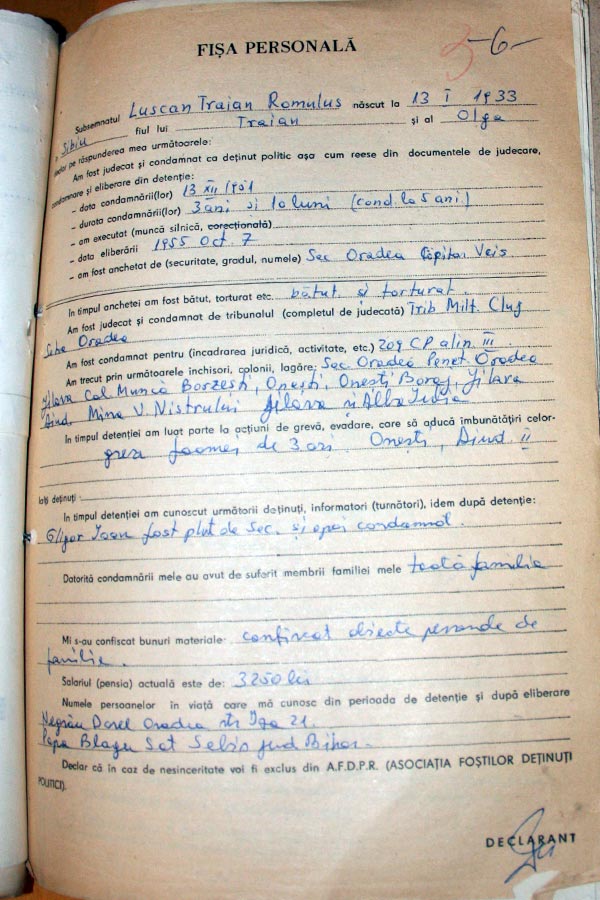 3-6-
FIȘA PERSONALĂ
Subsemnatul Luscan Traian Romulus născut la 13 I 1933
Sibiu fiul lui Traian și al Olga
pe răspunderea mea următoarele:
Am fost judecat și condamnat ca deținut politic așa cum reese din documentele de judecare,
condamnare și eliberare din detenție:
- data condamnării(lor) 13 XII/1951
- durata condamnării(lor) 3 ani si 10 luni (cond. la 5 ani)
- am executat (muncă silnică, corecțională)
- data eliberării 1955 Oct. 7
- am fost anchetat de (securitate, gradul, numele) Sec Oradea Căpitan Veis
In timpul anchetei am fost bătut, torturat etc. bătut si torturat.
Am fost judecat și condamnat de tribunalul (completul de judecată) Trib Milt. Cluj
Oradea
Am fost condamnat pentru (incadrarea juridică, activitate, etc.) 209 CP alin. III
Am trecut prin următoarele inchisori, colonii, lagăre: Sec Oradea Penet. Oradea
Jilava Col Muncă Borzești, Onești, Onești Boraj, Jilava
Aiud. Mina V. Nistrului Jilava si Alba Iulia
In timpul detenției am luat parte la acțiuni de grevă, evadare, care să aducă imbunătățiri celor-
greva foamei de 3 ori Onesti, Aiud. II
lalți deținuți
In timpul detenției am cunoscut următorii deținuți, informatori (turnători), idem după detenție:
Gligor Ioan fost plut de Sec. si apoi condamnat.
Datorită condamnării mele au avut de suferit membrii familiei mele toată familia
Mi s-au confiscat bunuri materiale: confiscat obiecte personale de
familie.
Salariul (pensia) actuală este de: 3250 lei
Numele persoanelor în viață care mă cunosc din perioada de detenție și după eliberare
Negrău Dorel Oradea str Iza 21.
Popa Blagu Sat Sebis jud Bihor.
Declar că in caz de nesinceritate voi fi exclus din A.F.D.P.R. (ASOCIAȚIA FOȘTILOR DEȚINUȚI
POLITICI).
DECLARANT